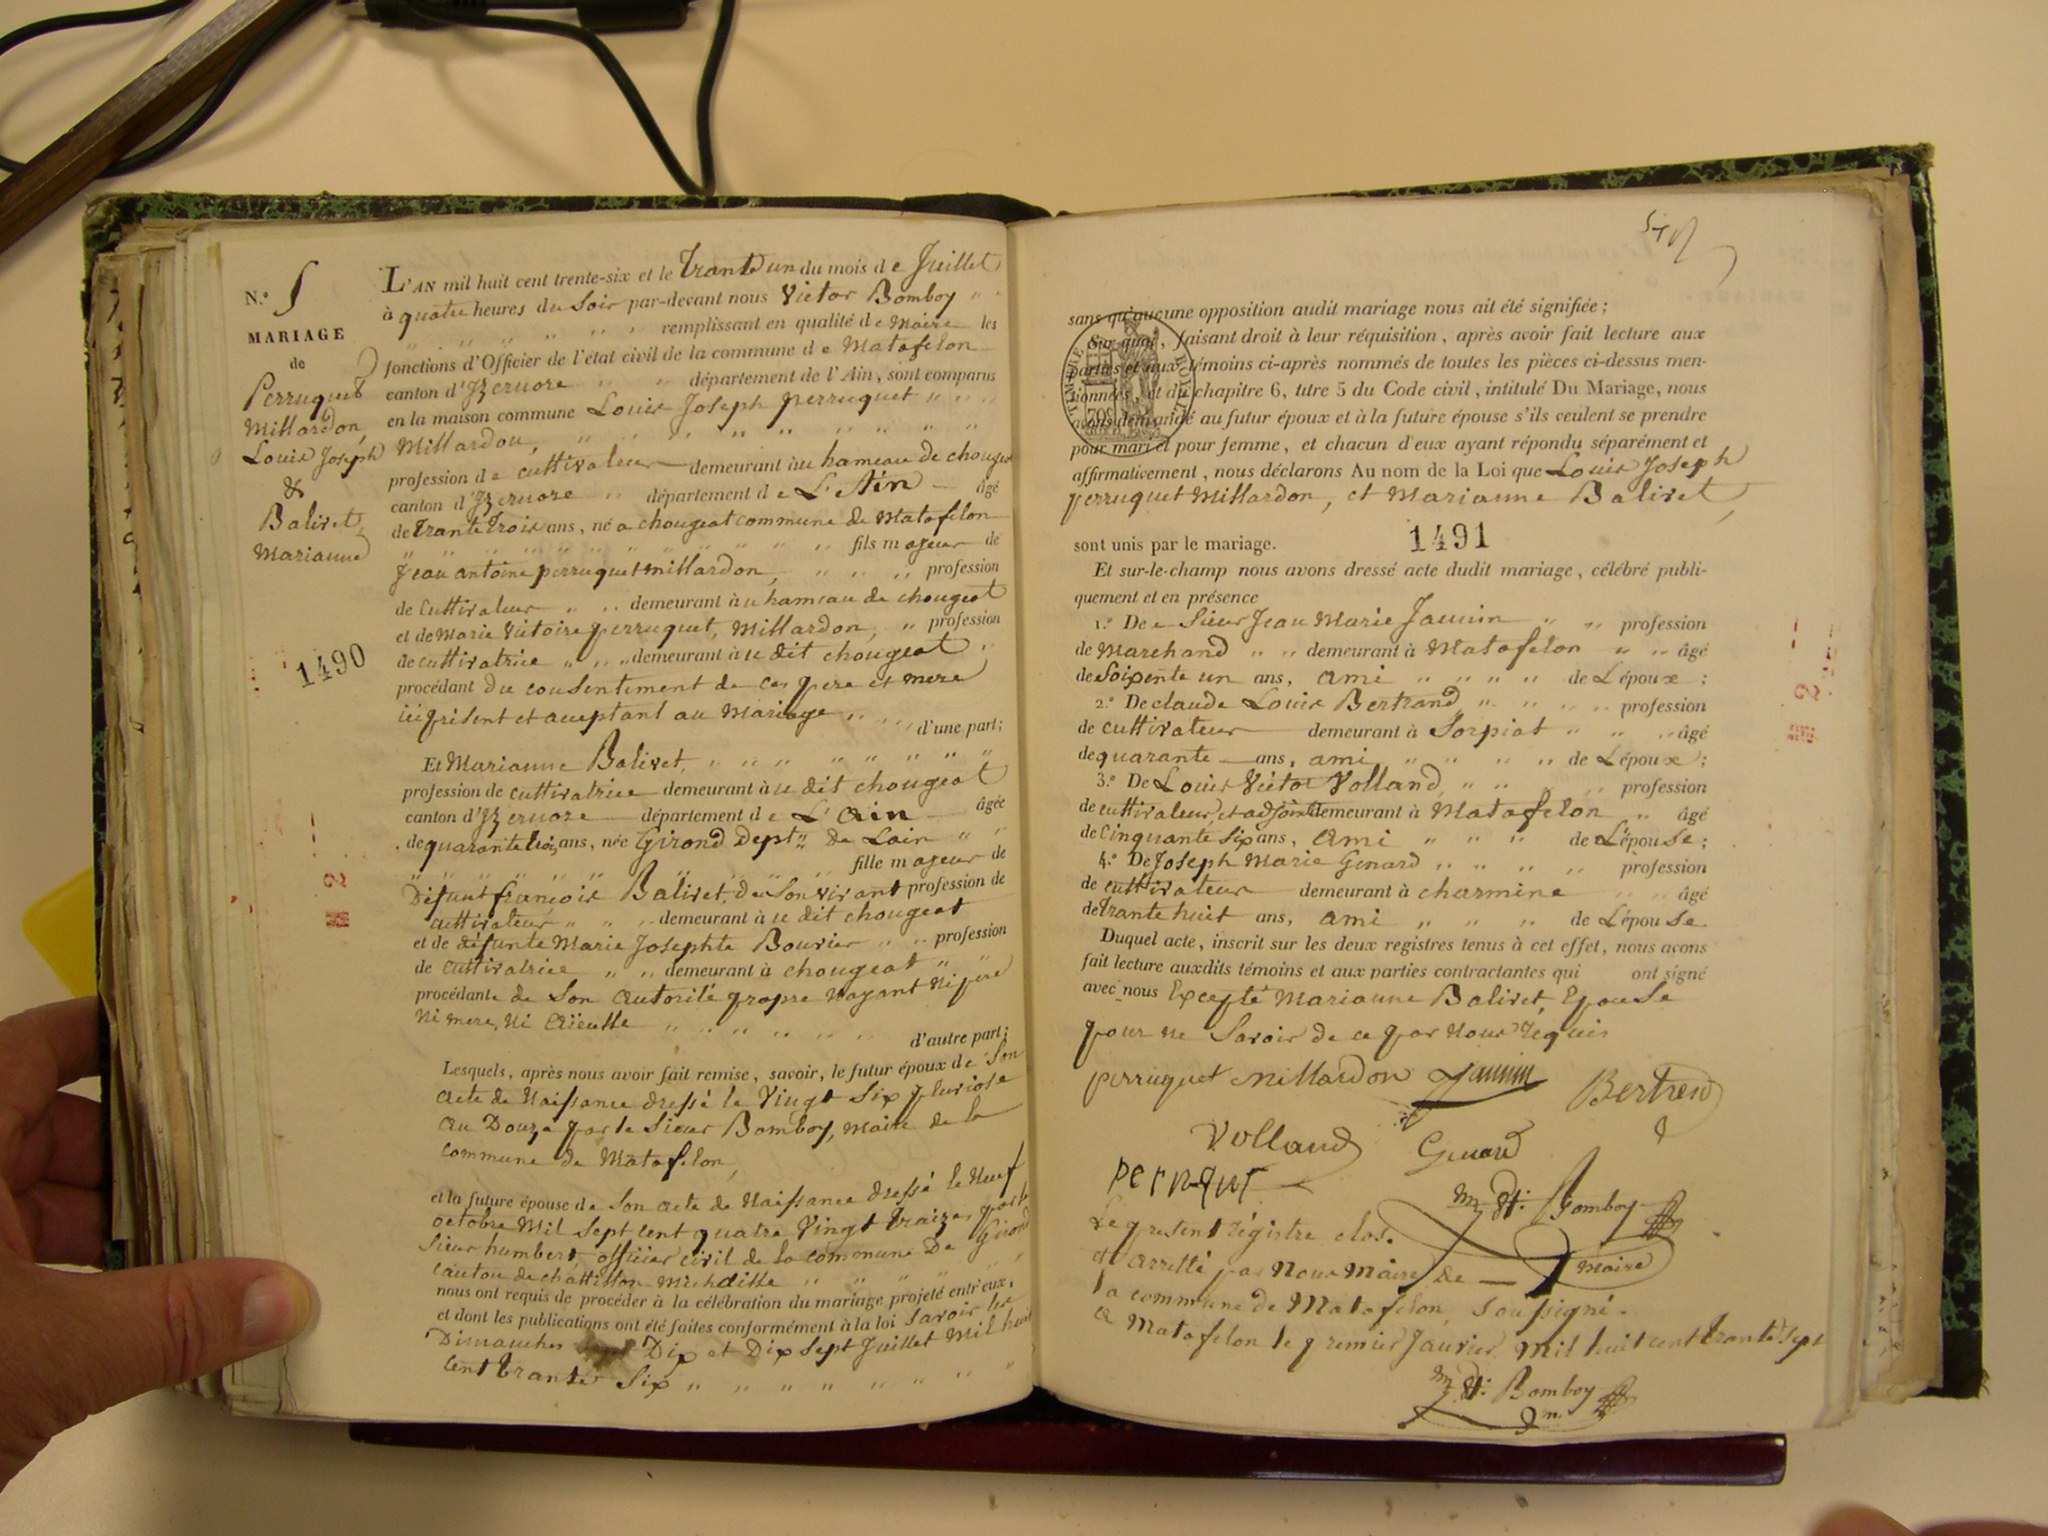 N.º 5
MARIAGE
de
Perruquet
Millardon,
Louis Joseph
&
Balivet,
Marianne
1490
L'AN mil huit cent trente-six et le trante un du mois de Juillet
à quatre heures du Soir par-devant nous Victor Bomboy " "
" " " " " remplissant en qualité de Maire les
fonctions d'Officier de l'état civil de la commune de Matafelon
canton d'Izernore " " département de l'Ain, sont comparus
en la maison commune Louis Joseph perruquet " " "
Millardon, " " " " " " " " "
profession de cultivateur demeurant au hameau de chougeat
canton d'Izernore " département de L'Ain — âgé
de trante trois ans, né a chougeat commune de Matafelon
" " " " " " " " " " fils majeur de
Jean antoine perruquet millardon, " " " profession
de cultivateur " " demeurant au hameau de chougeat
et de Marie Victoire perruquet, Millardon, " profession
de cultivatrice " " " demeurant à u dit chougeat "
procédant du consentement de ces pere et mere
ici présent et aceptant au Mariage " " " d'une part;
Et Marianne Balivet, " " " " " " "
profession de cultivatrice demeurant à u dit chougeat
canton d'Izernore — département de L'Ain — âgée
de quarante trois, ans, née Girond Dept.nt de Lain " "
" " " " " " " " fille majeur de
Défunt françois Balivet, de Son vivant profession de
cultivateur " " " demeurant à u dit chougeat
et de défunte Marie Josephte Bouvier " " profession
de cultivatrice " " demeurant à chougeat " "
procédante de Son autorité propre nayant ni père
ni mere, ni aieulle " " " " " " " d'autre part;
Lesquels, après nous avoir fait remise, savoir, le futur époux de Son
acte de Naissance dressé le Vingt Six pluviose
au Douze par le Sieur Bomboy, maire de la
commune de Matafelon,
et la future épouse de Son acte de Naissance dressé le Neuf
octobre Mil Sept cent quatre Vingt traize, par le
Sieur humbert officier civil de la commune De Girond
canton de châtillon michaille " " " "
nous ont requis de procéder à la célébration du mariage projeté entr'eux,
et dont les publications ont été faites conformément à la loi Savoir les
Dimanches Dix et Dix Sept Juillet Mil huit
cent trante Six " " " " " " "
sans qu'aucune opposition audit mariage nous ait été signifiée;
Sur quoi, faisant droit à leur réquisition, après avoir fait lecture aux
parties et aux témoins ci-après nommés de toutes les pièces ci-dessus men-
tionnées, et du chapitre 6, titre 5 du Code civil, intitulé Du Mariage, nous
avons demandé au futur époux et à la future épouse s'ils veulent se prendre
pour mari et pour femme, et chacun d'eux ayant répondu séparément et
affirmativement, nous déclarons Au nom de la Loi que Louis Joseph
perruquet Millardon, et Marianne Balivet,
sont unis par le mariage. 1491
Et sur-le-champ nous avons dressé acte dudit mariage, célébré publi-
quement et en présence
1.º De e Sieur Jean Marie Jannin " " profession
de Marchand " " demeurant à Matafelon " " âgé
de Soixente un ans, ami " " " " de L'époux ;
2.º De claude Louis Bertrand, " " " " profession
de cultivateur demeurant à Sorpiat " " " âgé
de quarante ans, ami " " " " de L'époux;
3.º De Louis Victor Volland, " " " " profession
de cultivateur, et adjoint demeurant à Matafelon " âgé
de Cinquante Six ans, ami " " " de L'épouse;
4.º De Joseph Marie Genard " " " " profession
de cultivateur demeurant à charmine " " âgé
de trante huit ans, ami " " " de L'épouse
Duquel acte, inscrit sur les deux registres tenus à cet effet, nous avons
fait lecture auxdits témoins et aux parties contractantes qui ont signé
avec nous Excepté Marianne Balivet, Epouse
pour ne Savoir de ce par Nous réquis
perruquet Millardon Jannin Bertrend
Volland Genard
perruqut
m.or V.or Bomboy
Maire
Le present régistre clos.
et arretté par Nous Maire de —
la commune de Matafelon, Soussigné.
a Matafelon le premier Janvier Mil huit cent trante Sept
V.or Bomboy
m.